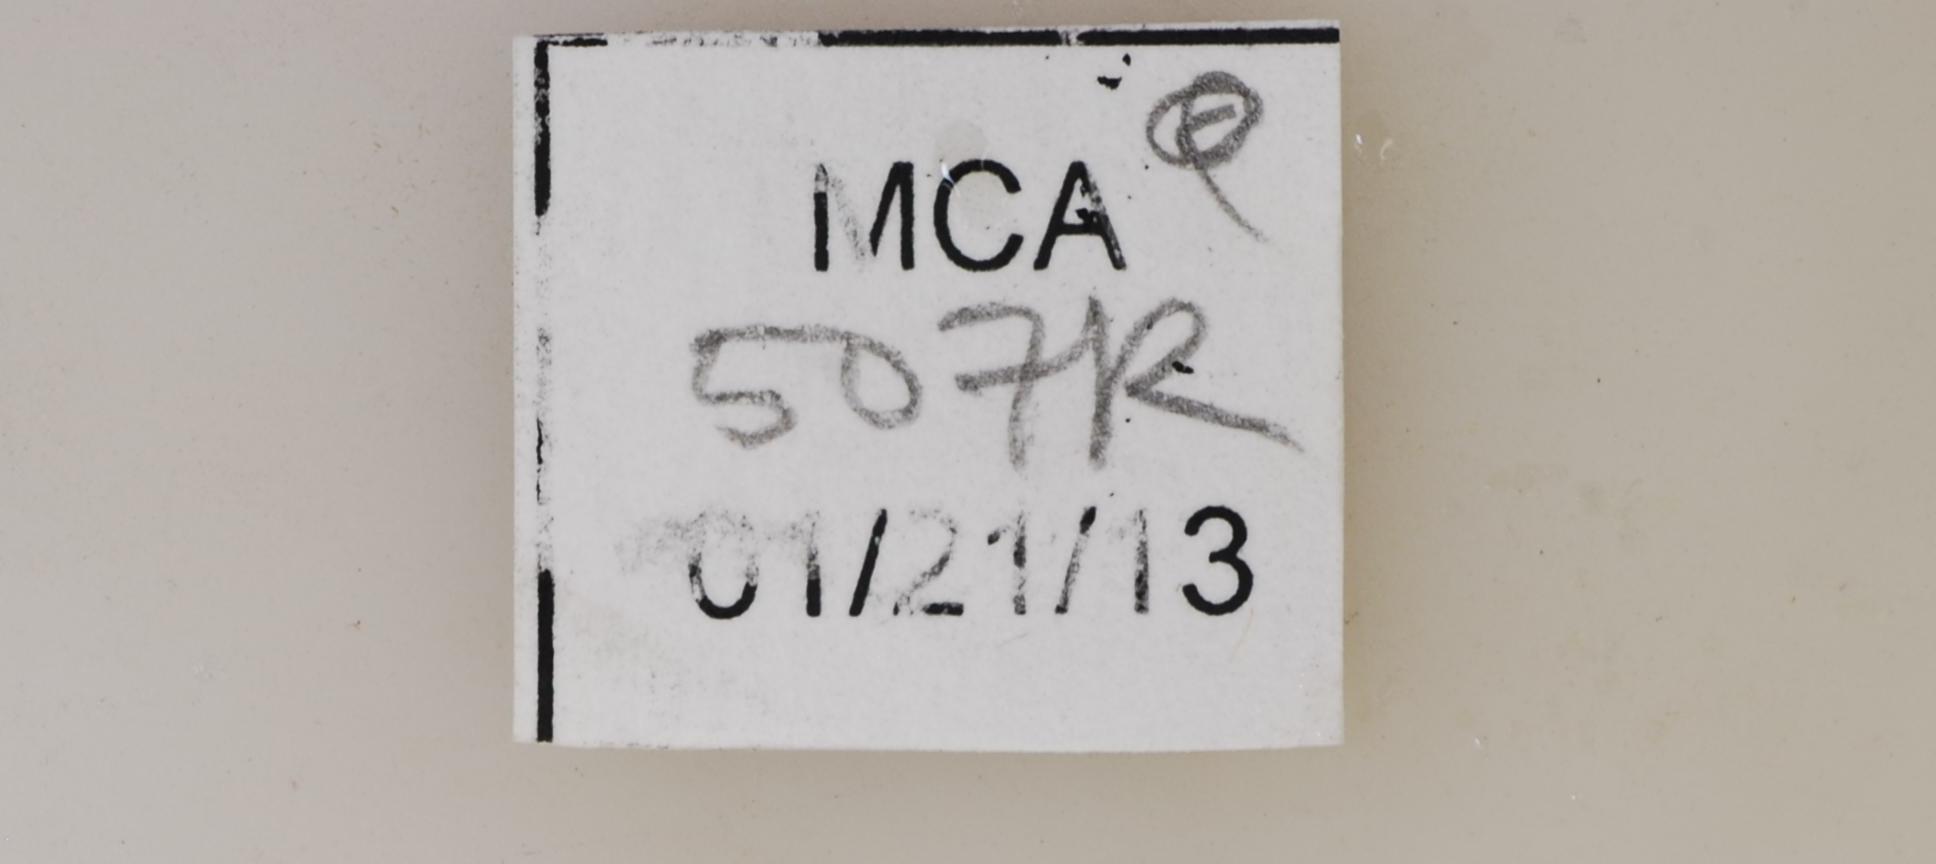 MCA
507R
01/21/13